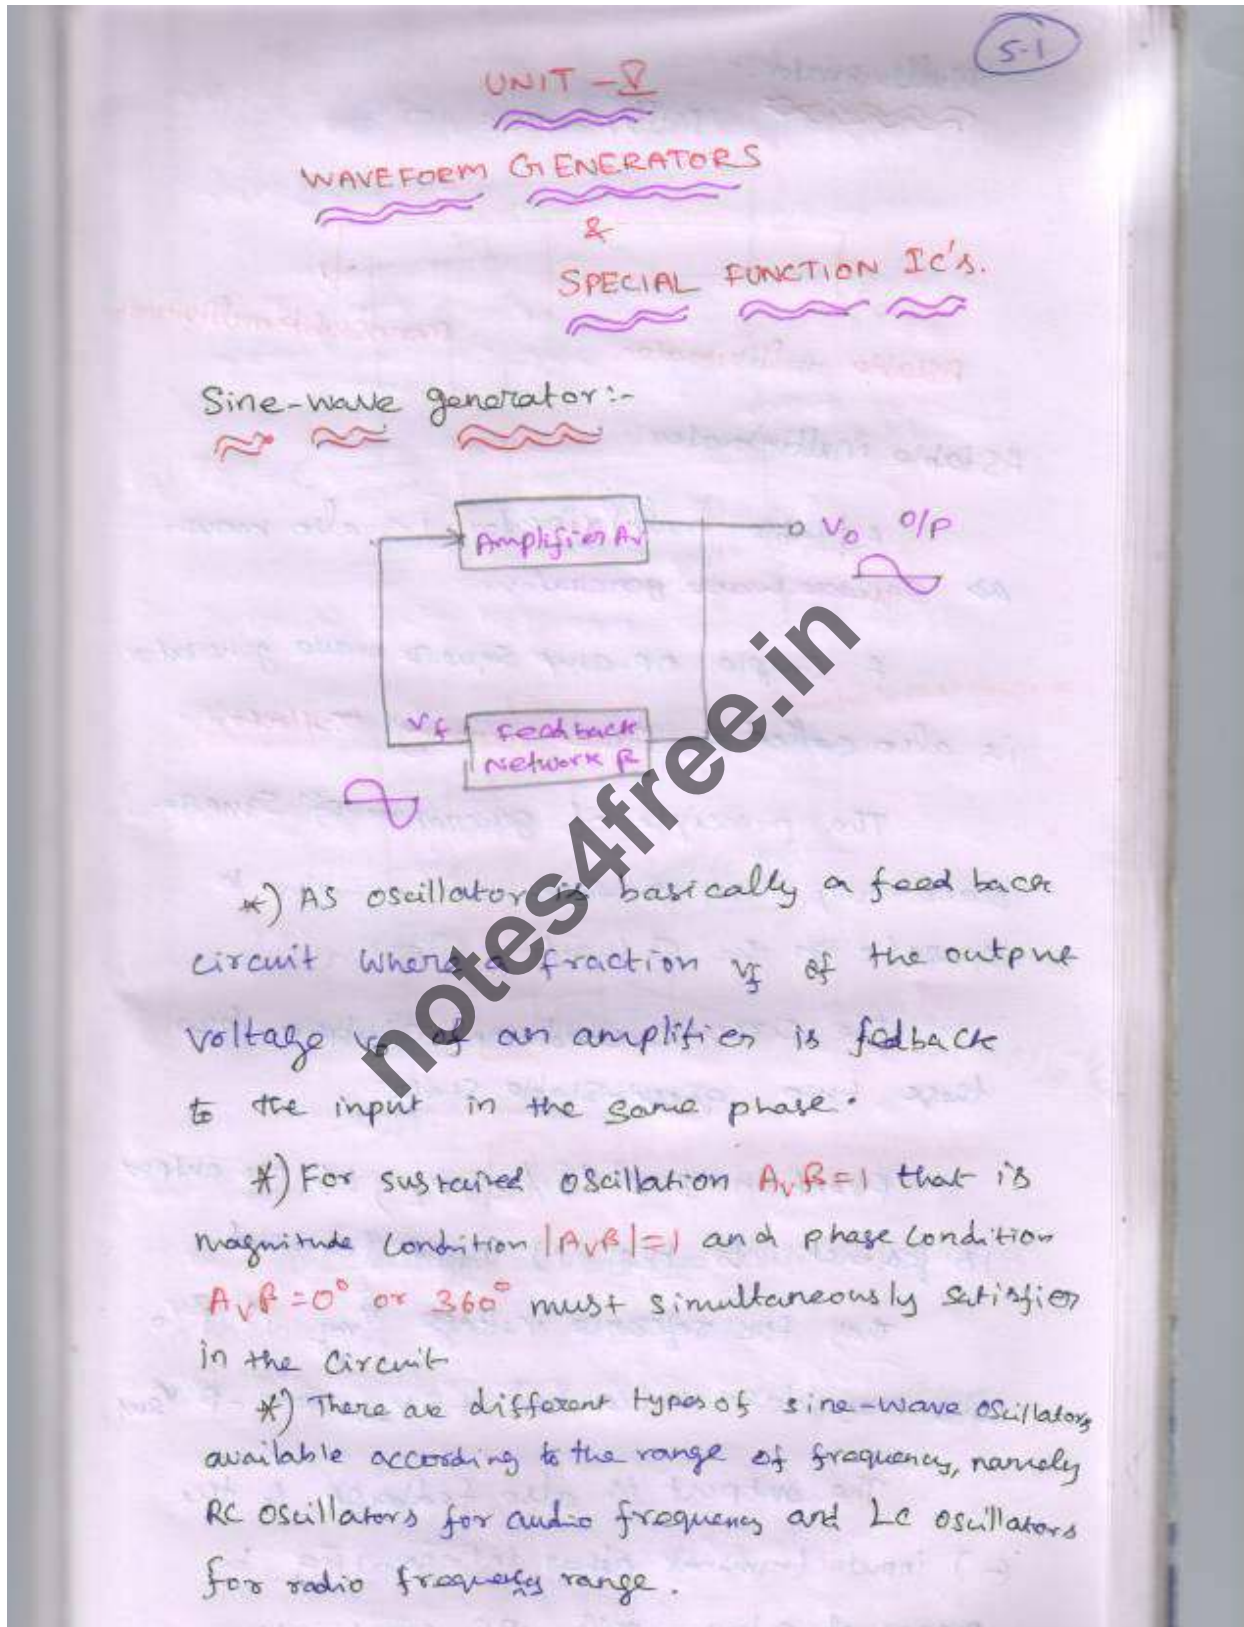 5.1
UNIT - V
WAVEFORM GENERATORS
&
SPECIAL FUNCTION IC's.
Sine-wave generator:-
Amplifier Av
Vo O/P
Vf
Feedback
Network β
*) AS oscillator is basically a feed back
circuit where a fraction vf of the output
voltage vo of an amplifier is fedback
to the input in the same phase.
*) For sustained oscillation Avβ=1 that is
magnitude condition |Avβ|=1 and phase condition
Avβ=0° or 360° must simultaneously satisfier
in the circuit
*) There are different types of sine-wave oscillators
available according to the range of frequency, namely
RC oscillators for audio frequency and LC oscillators
for radio frequency range.
notes4free.in